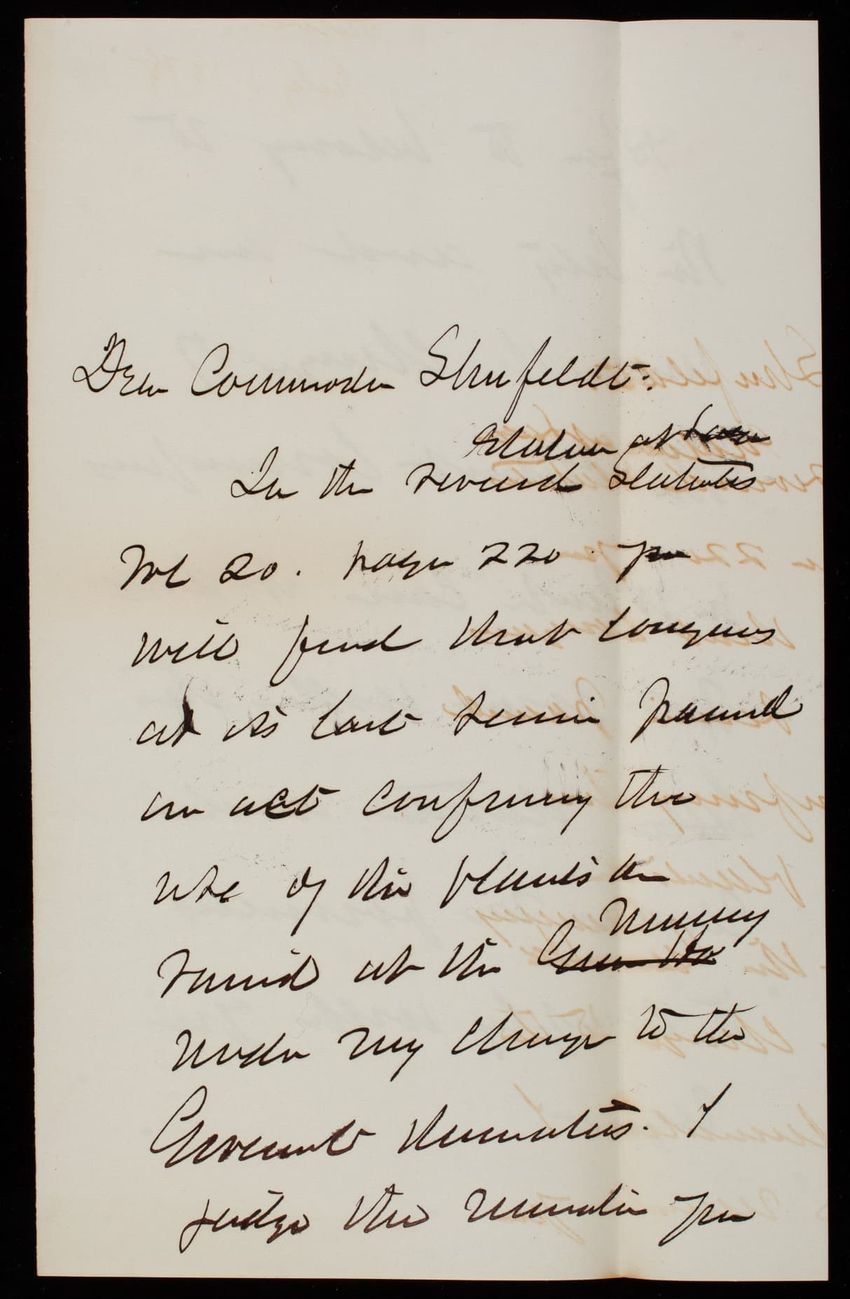 Dear Commodore Shufeldt:
Statutes at
In the revised statutes
Vol 20. page 220 you
will find that Congress
at its last session passed
an act confining the
use of the plants an
raised at the Nursery
under my charge to the
Government
judge the you